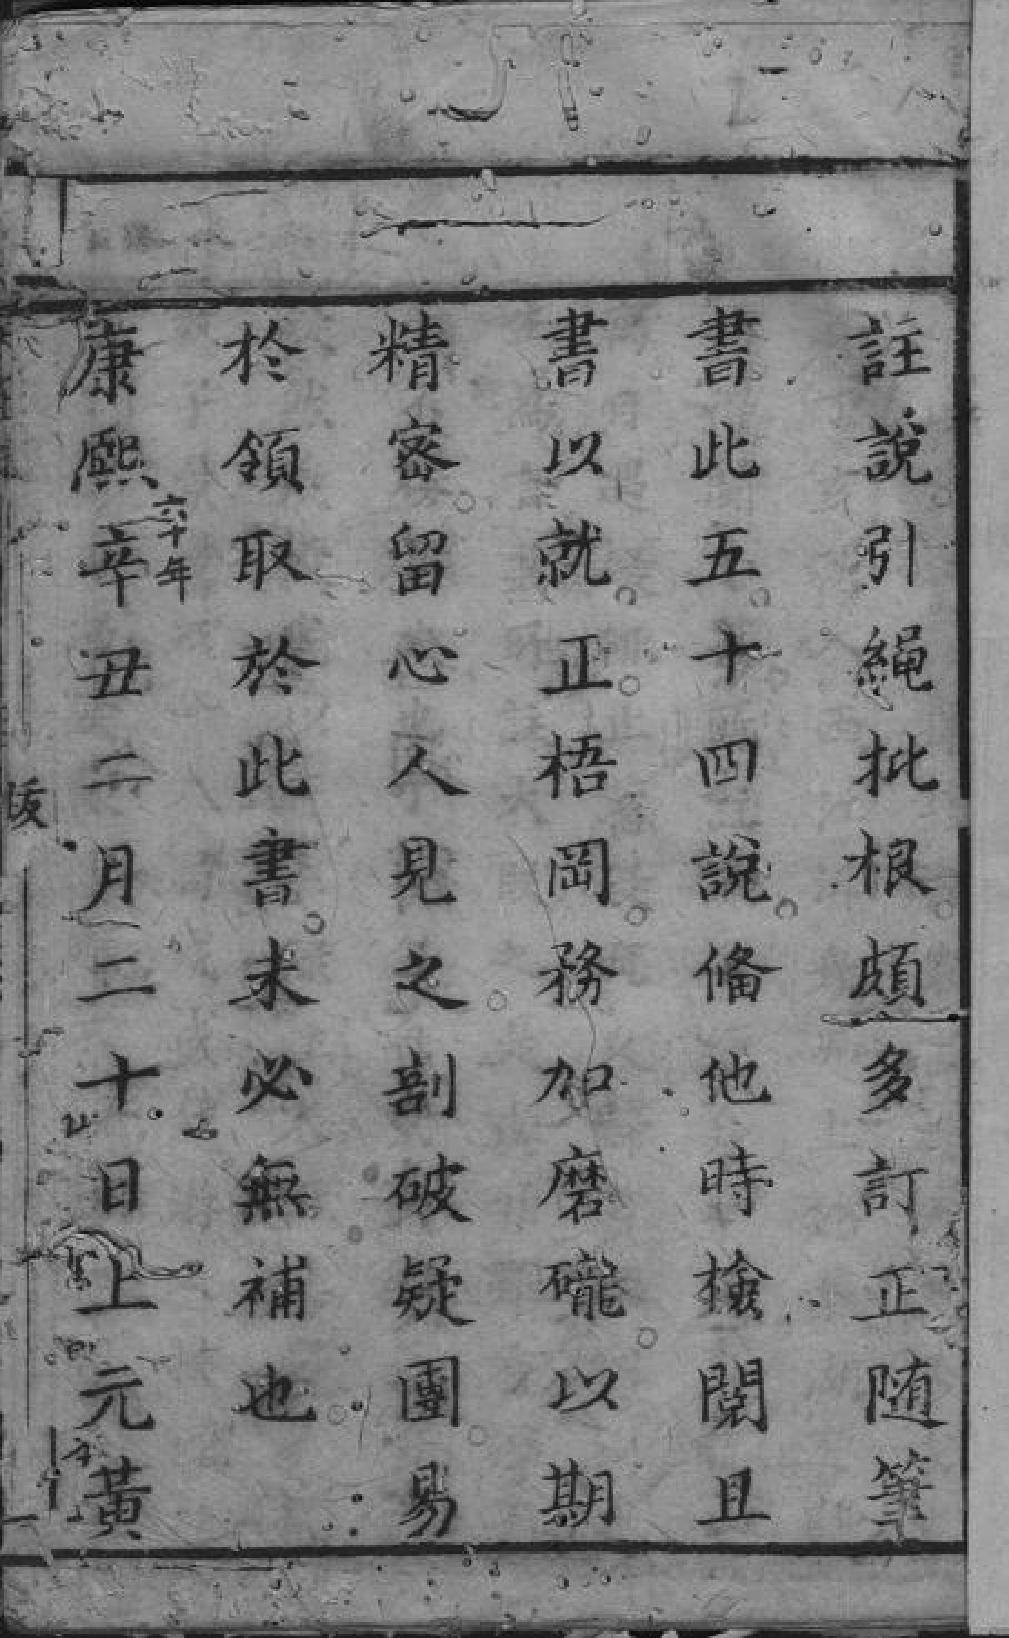 註說引繩批根頗多訂正随筆
書此五十四說俻他時檢閱且
書以就正梧岡務加磨礲以期
精宻留心人見之剖破疑團易
於領取於此書未必無補也
康熙辛丑二月二十日上元黃
六十年